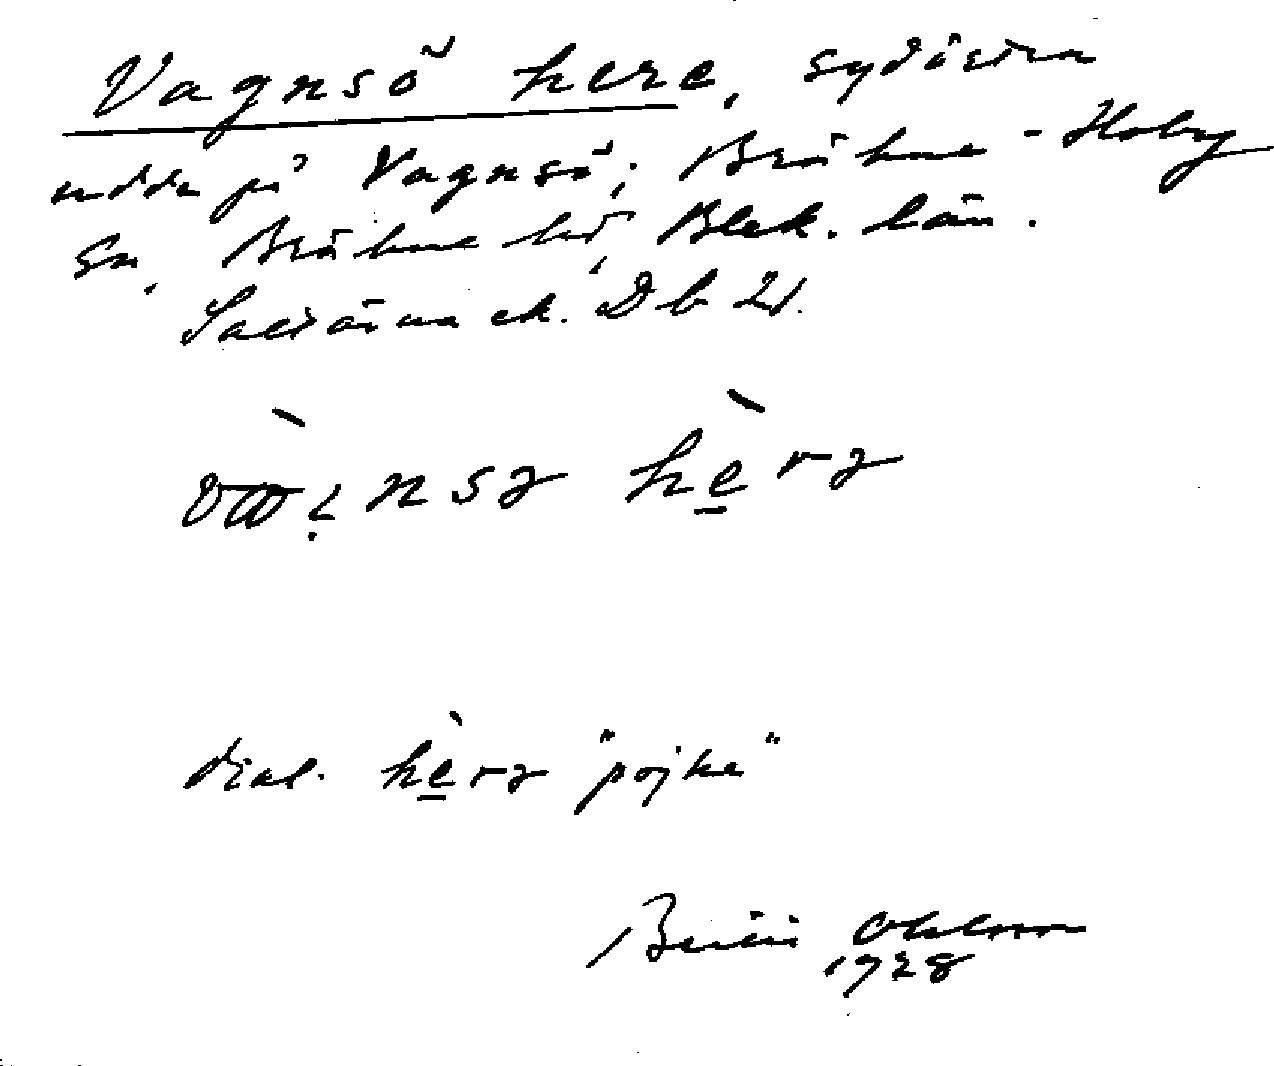 Vagnsö here, sydöstra
udde på Vagnsö; Bräkne-Hoby
sn, Bräkne hd, Blek. län.
Saltärna ek. Db 21.
hèrə
dial. hèrə "pojke"
Bertil Ohlsson
1928